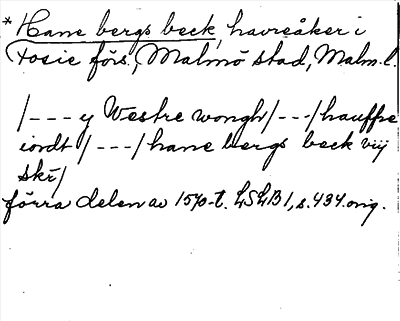 * Hane bergs beck, havreåker i
Fosie förs., Malmö stad, Malm. l.
/--- y Westre wongh/---/hauffre
iordt /---/hane bergs beck viij
skr/
förra delen av 1570-t. LSLB 1, s.434.orig.